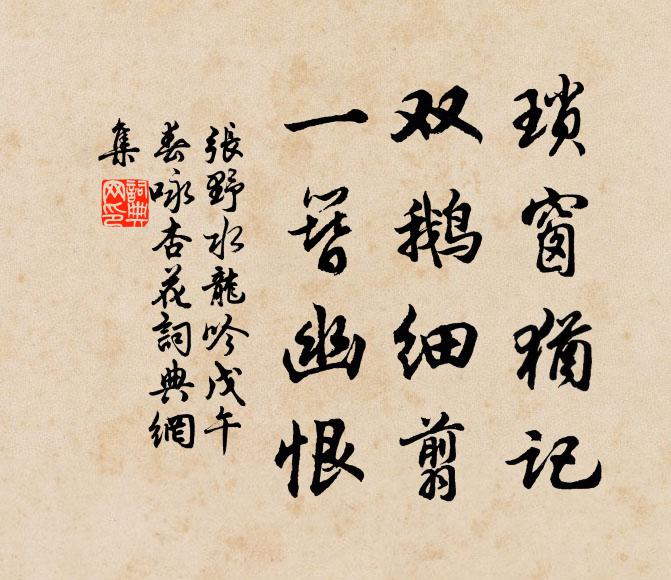 琐窗犹记
双鹅细剪
一簪幽恨
張野水龍吟戊午
春咏杏花詞典網
集
詞典
网印